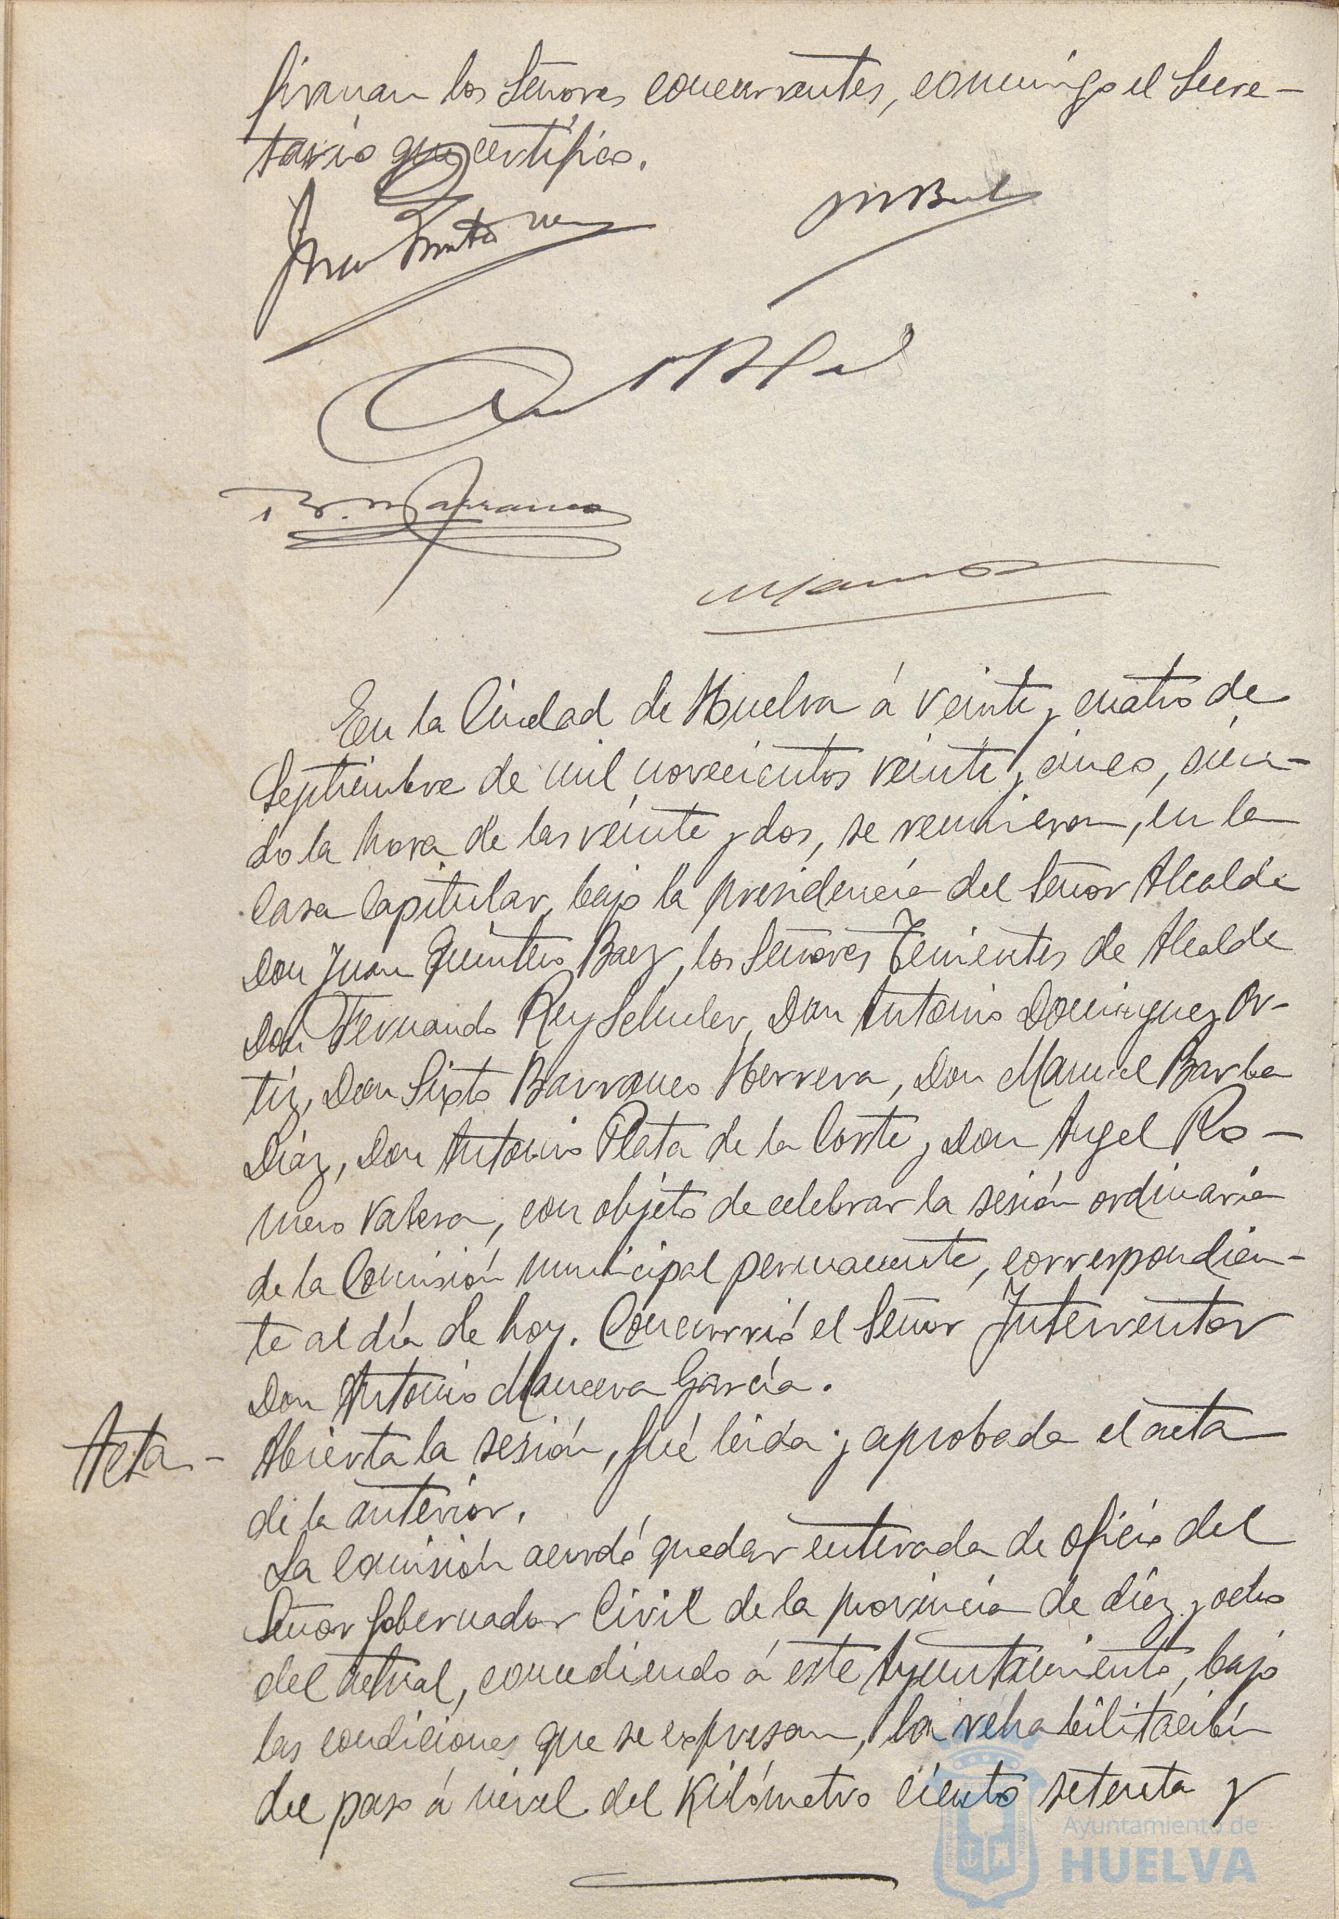 firman los Señores concurrentes, conmigo el Secre-
tario que certifico.
En la Ciudad de Huelva á veinte y cuatro de
Septiembre de mil novecientos veinte y cinco, sien-
do la hora de las veinte y dos, se reunieron, en la
Casa Capitular, bajo la presidencia del Señor Alcalde
Don Juan Quintero Baez, los Señores Tenientes de Alcalde
Don Fernando Rey Schuler, Don Antonio Dominguez Or-
tiz, Don Sixto Barranco Herrera, Don Manuel Barba
Diaz, Don Antonio Plata de la Corte y Don Angel Ro-
mero Valera, con objeto de celebrar la sesión ordinaria
de la Comisión municipal permanente, correspondien-
te al día de hoy. Concurrió el Señor Interventor
Don Antonio Mancera García.
Acta- Abierta la sesión, fué leida y aprobada el acta
de la anterior.
La Comisión acordó quedar enterada de oficio del
Señor Gobernador Civil de la provincia de diez y ocho
del actual, concediendo á este Ayuntamiento, bajo
las condiciones que se expresan, la rehabilitación
del paso á nivel del Kilómetro ciento setenta y
Ayuntamiento de
HUELVA